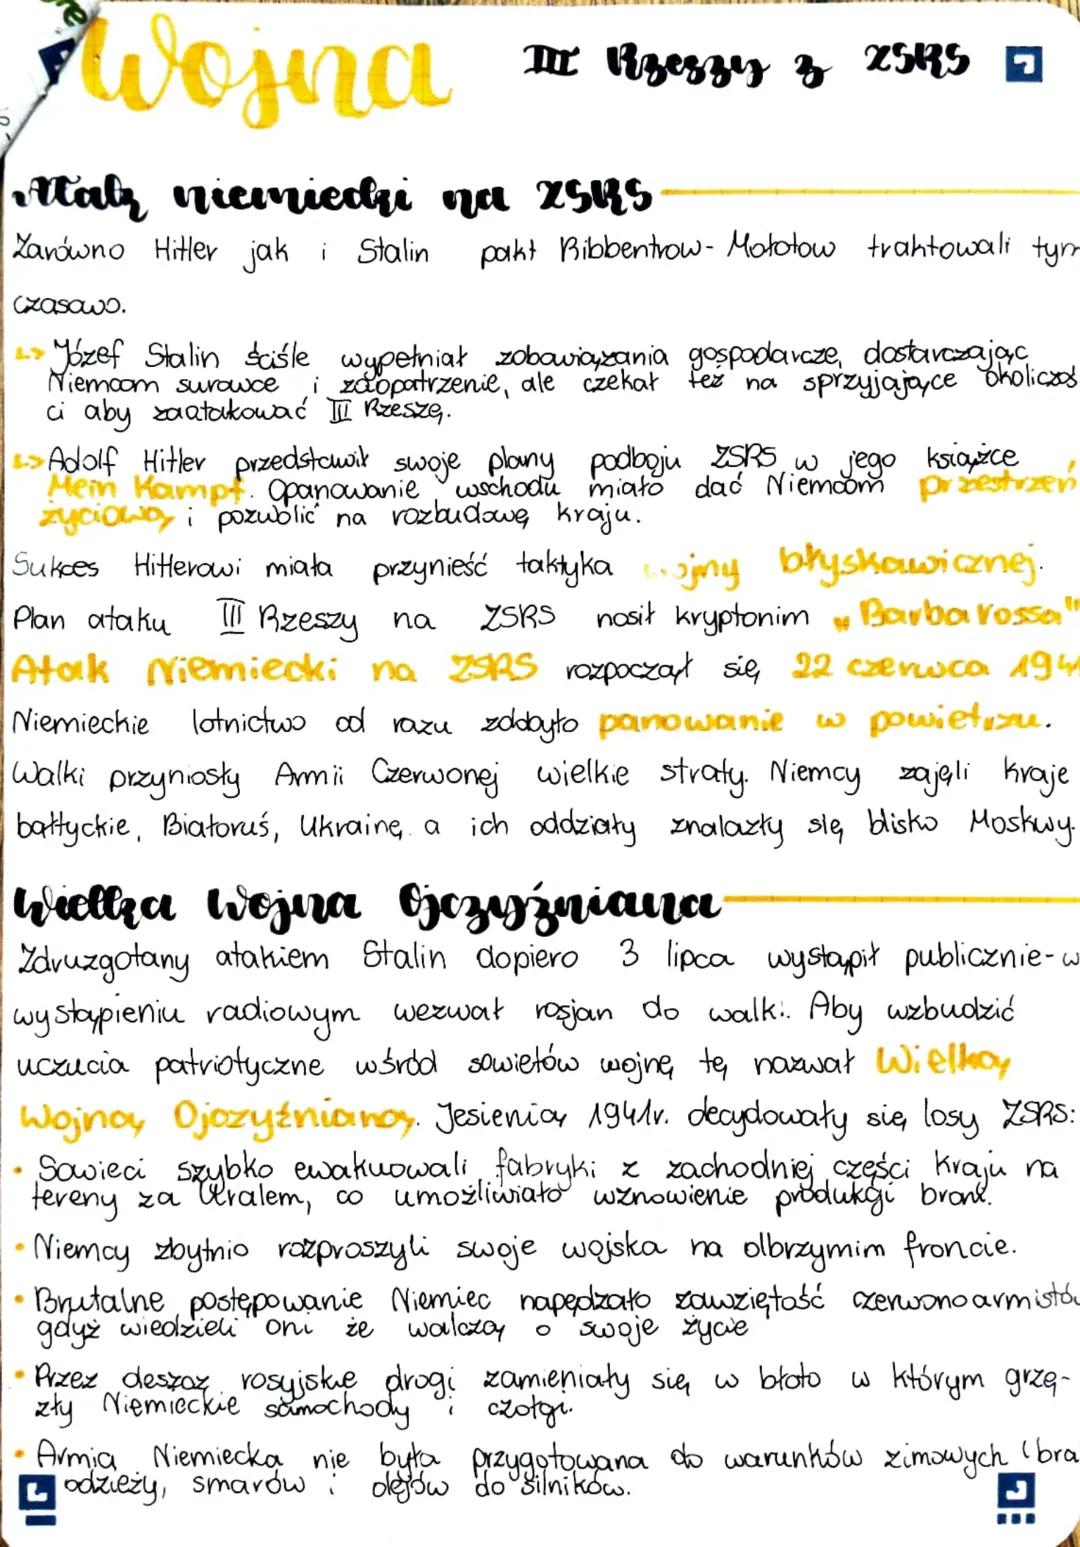 Wojna III Rzeszy z ZSRS
Atak niemiecki na ZSRS
Zarówno Hitler jak i Stalin pakt Ribbentrow-Mołotow traktowali tym
czasowo.
↳ Józef Stalin ściśle wypełniał zobowiązania gospodarcze, dostarczając
Niemcom surowce i zaopatrzenie, ale czekał też na sprzyjające okolicznoś
ci aby zaatakować III Rzeszę.
↳ Adolf Hitler przedstawił swoje plany podboju ZSRS w jego książce
Mein Kampf. Opanowanie wschodu miało dać Niemcom przestrzeń
życiową i pozwolić na rozbudowę kraju.
Sukces Hitlerowi miała przynieść taktyka wojny błyskawicznej.
Plan ataku III Rzeszy na ZSRS nosił kryptonim „Barbarossa"
Atak Niemiecki na ZSRS rozpoczął się 22 czerwca 1941
Niemieckie lotnictwo od razu zdobyło panowanie w powietrzu.
Walki przyniosły Armii Czerwonej wielkie straty. Niemcy zajęli kraje
bałtyckie, Białoruś, Ukrainę a ich oddziały znalazły się blisko Moskwy.
Wielka Wojna Ojczyźniana
Zdruzgotany atakiem Stalin dopiero 3 lipca wystąpił publicznie - w
wystąpieniu radiowym wezwał rosjan do walki. Aby wzbudzić
uczucia patriotyczne wśród sowietów wojnę tę nazwał Wielką
Wojną Ojczyźnianą. Jesienią 1941r. decydowały się losy ZSRS:
• Sowieci szybko ewakuowali fabryki z zachodniej części kraju na
tereny za Uralem, co umożliwiało wznowienie produkcji broni.
• Niemcy zbytnio rozproszyli swoje wojska na olbrzymim froncie.
• Brutalne postępowanie Niemiec napędzało zawziętość czerwonoarmistów
gdyż wiedzieli oni że walczą o swoje życie
• Przez deszcz rosyjskie drogi zamieniały się w błoto w którym grzę-
zły Niemieckie samochody i czołgi.
• Armia Niemiecka nie była przygotowana do warunków zimowych (bra
odzieży, smarów i olejów do silników.